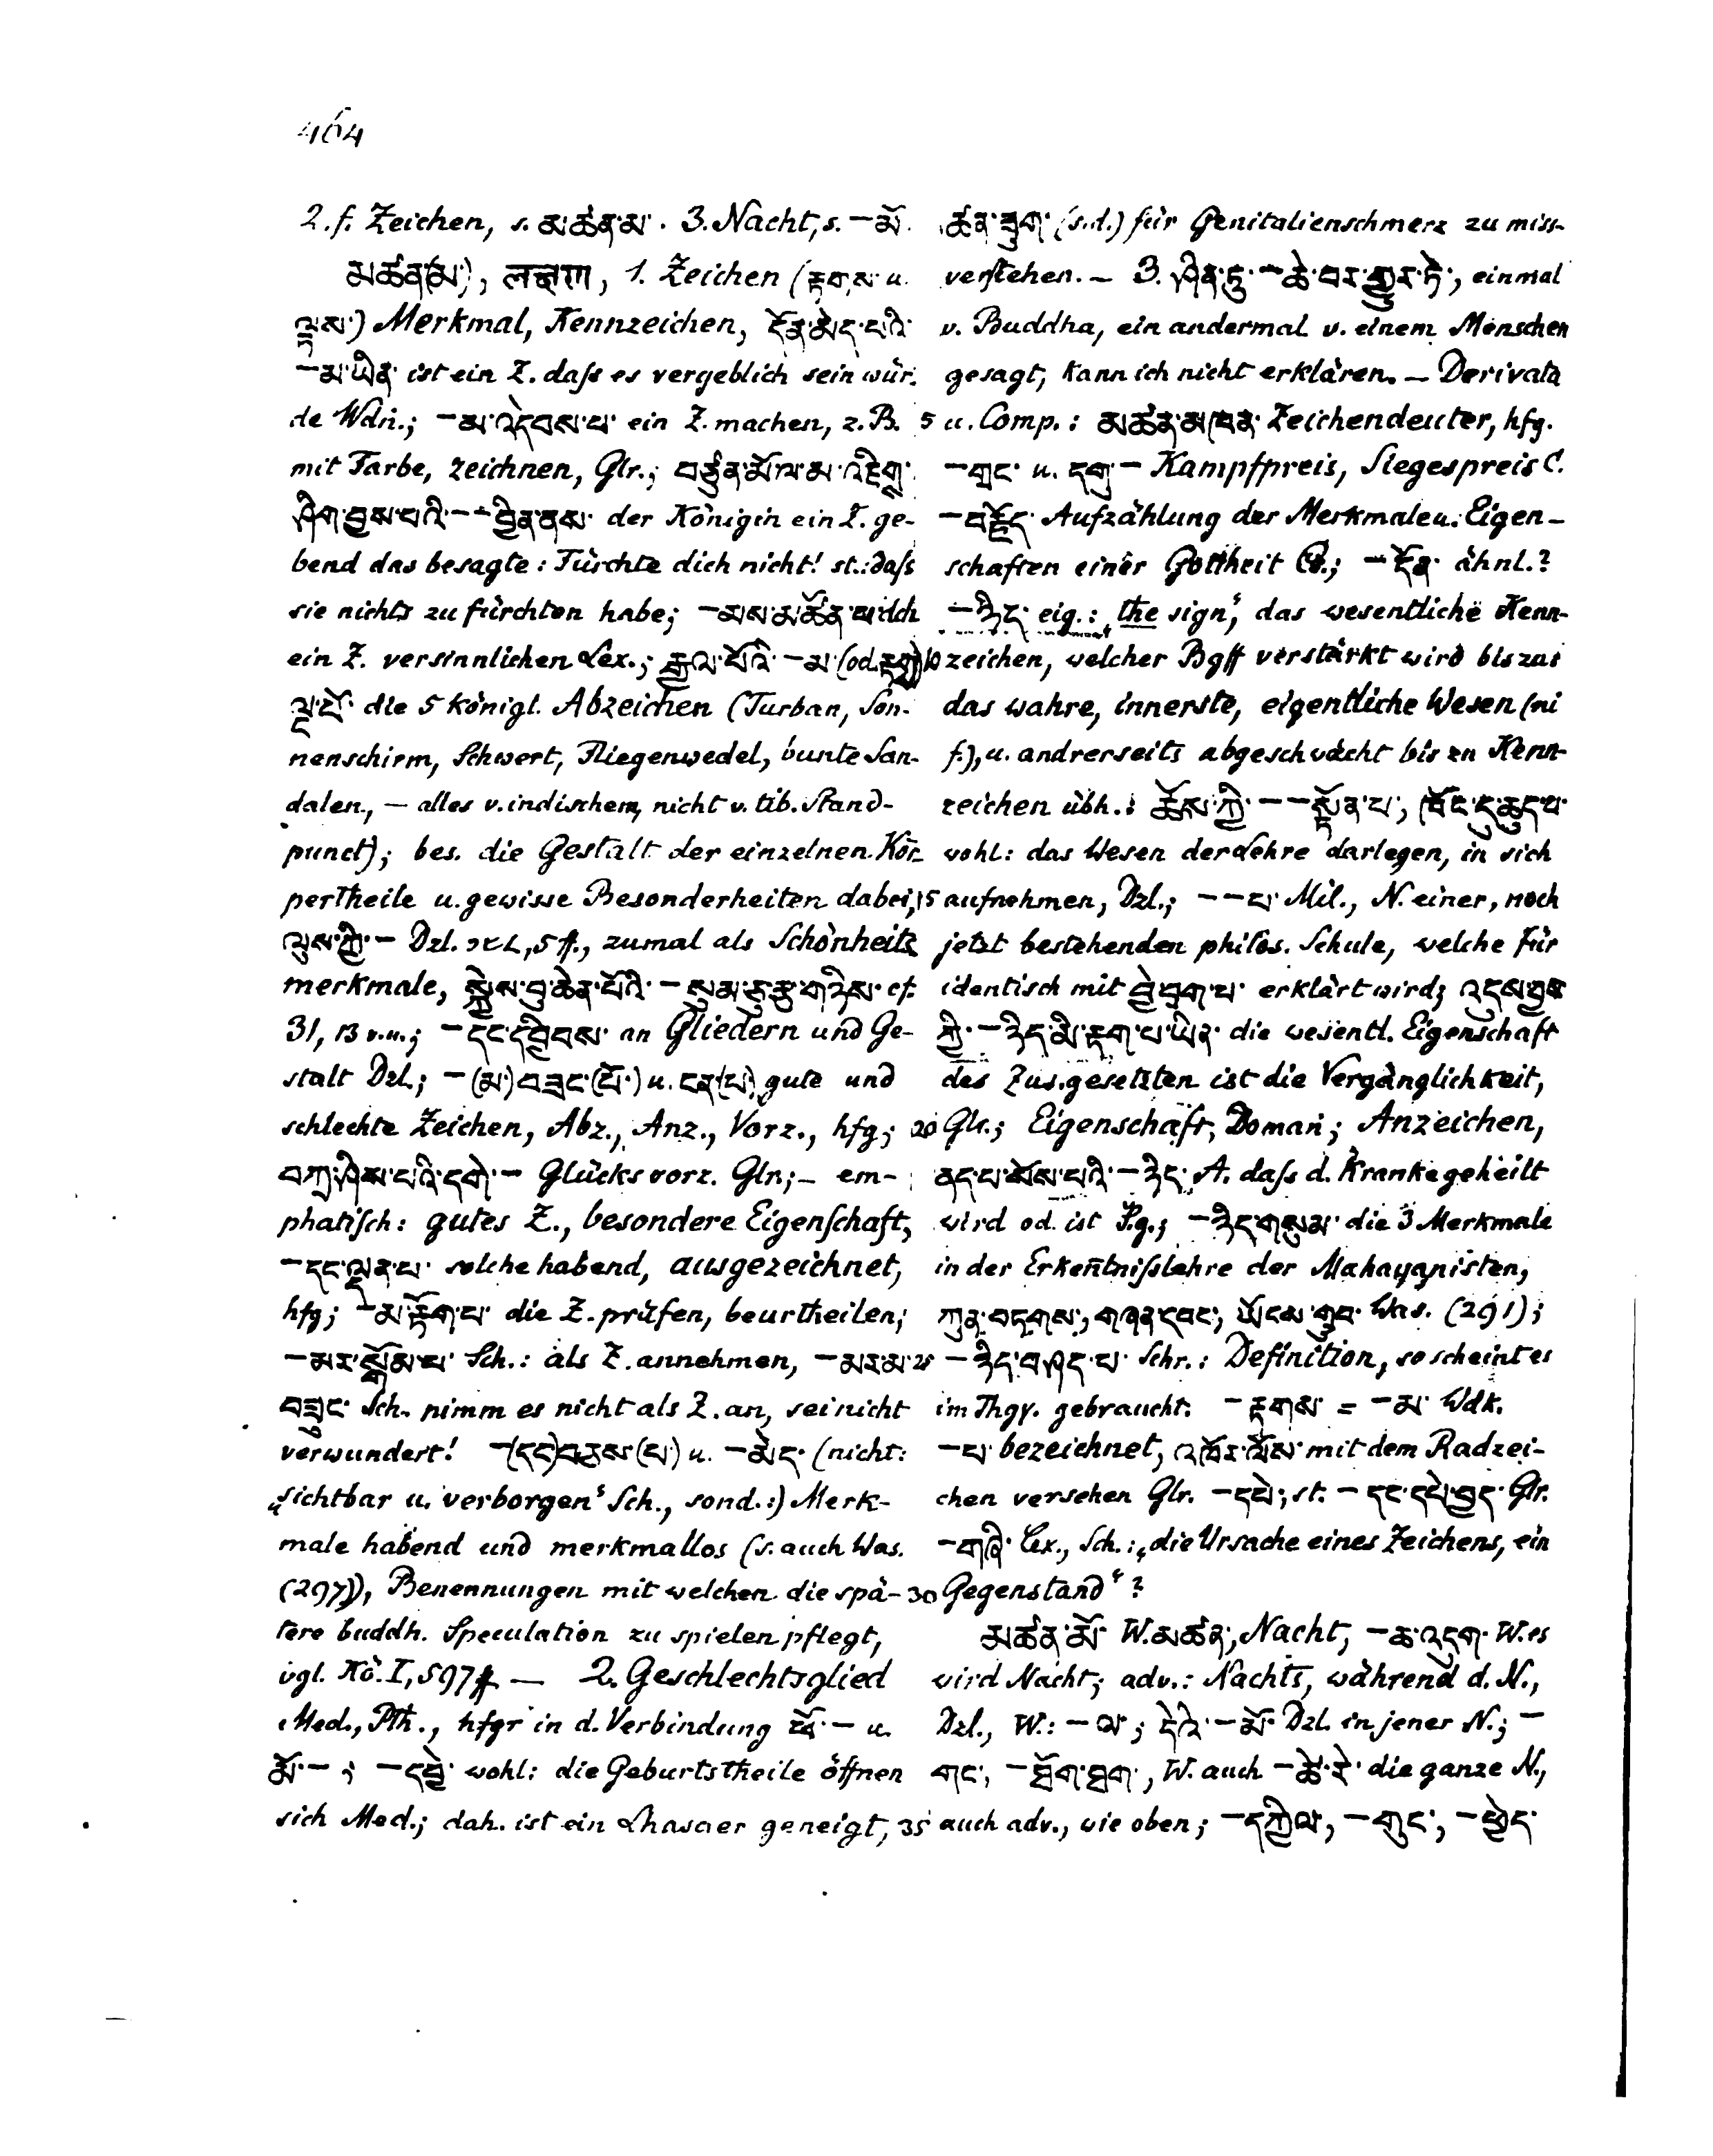 464
2. f. Zeichen, s. མ་ཚན་མ་. 3. Nacht, s. – མོ་
མཚན་(མ་), लक्षण, 1. Zeichen (རྟགས་ u.
ལྟས་) Merkmal, Kennzeichen, དོན་མེད་པའི་
– མ་ཡིན་ ist ein Z. daſs es vergeblich sein wür-
de Wdn.; – མ་འདེབས་པ་ ein Z. machen, z. B.
mit Farbe, zeichnen, Glr.; བཙུན་མོ་ལ་མ་འཇིགས་
ཤིག་བྱས་པའི་ – – བྱིན་ནས་ der Königin ein Z. ge-
bend das besagte: Fürchte dich nicht! st.: daſs
sie nichts zu fürchten habe; – མས་མཚོན་པ་ dch
ein Z. versinnlichen Lex.; རྒྱལ་པོའི་ – མ་ (od. རྟགས་)
ལྔ་པོ་ die 5 königl. Abzeichen (Turban, Son-
nenschirm, Schwert, Fliegenwedel, bunte San-
dalen, – alles v. indischem, nicht v. tib. Stand-
punct); bes. die Gestalt der einzelnen Kör-
pertheile u. gewisse Besonderheiten dabei,
ལུས་ཀྱི་ – Dzl. , 5 ff., zumal als Schönheits
merkmale, སྐྱེས་བུ་ཆེན་པོའི་ – སུམ་ཅུ་རྩ་གཉིས་ cf.
31, 13 v. u.; – དང་དབྱིབས་ an Gliedern und Ge-
stalt Dzl.; – (མ་) བཟང་(པོ་) u. ངན་(པ་) gute und
schlechte Zeichen, Abz., Anz., Vorz., hfg;
བཀྲ་ཤིས་པའི་དགེ་ – Glücksvorz. Gln; – em-
phatiſch: gutes Z., besondere Eigenſchaft,
– དང་ལྡན་པ་ solche habend, ausgezeichnet,
hfg; – མ་རྟོག་པ་ die Z. prüfen, beurtheilen;
– མར་སྒོམ་པ་ Sch.: als Z. annehmen, – མར་མ་
བཟུང་ Sch. nimm es nicht als Z. an, sei nicht
verwundert! – (དང་)བཅས་(པ་) u. – མེད་ (nicht:
„sichtbar u. verborgen“ Sch., sond.:) Merk-
male habend und merkmallos (s. auch Was.
(297)), Benennungen mit welchen die spä-
tere buddh. Speculation zu spielen pflegt,
vgl. Kö. I, 597 ff. – 2. Geschlechtsglied
Med., Pth., hfgr in d. Verbindung ཕོ་ – u.
མོ་ – ; – དབྱེ་ wohl: die Geburtstheile öffnen
sich Med.; dah. ist ein Lhasaer geneigt,
ཚན་ཟུག་ (s.d.) für Genitalienschmerz zu miss-
verſtehen. – 3. ཤིན་ཏུ་ – ཆེ་བར་གྱུར་ཏེ་, einmal
v. Buddha, ein andermal v. einem Menschen
gesagt, kann ich nicht erklären. – Derivata
5 u. Comp.: མཚན་མཁན་ Zeichendeuter, hfg.
– གྲང་ u. དགུ་ – Kampfpreis, Siegespreis C.
– བརྗོད་ Aufzählung der Merkmale u. Eigen-
schaften einer Gottheit ; – དོན་ ähnl.?
– ཉིད་ eig.: „the sign“, das wesentliche Kenn-
10 zeichen, welcher Bgff verstärkt wird bis zu:
das wahre, innerste, eigentliche Wesen (ni
f.), u. andrerseits abgeschwächt bis zu Kenn-
zeichen übh.: ཆོས་ཀྱི་ – – སྟོན་པ་, (ཁོང་དུ་ཆུད་པ་
wohl: das Wesen der Lehre darlegen, in sich
15 aufnehmen, Dzl.; – – པ་ Mil., N. einer, noch
jetzt bestehenden philos. Schule, welche für
identisch mit བྱེ་བྲག་པ་ erklärt wird; འདུས་བྱས་
ཀྱི་ – ཉིད་མི་རྟག་པ་ཡིན་ die wesentl. Eigenschaft
des Zus.gesetzten ist die Vergänglichkeit,
20 Glr.; Eigenschaft, Doman; Anzeichen,
ནད་པ་སོས་པའི་ – ཉིད་ A. daſs d. Kranke geheilt
wird od. ist P.g.; – ཉིད་གསུམ་ die 3 Merkmale
in der Erkenntniſslehre der Mahayanisten,
ཀུན་བཏགས་, གཞན་དབང་, ཡོངས་གྲུབ་ Was. (291);
25 – ཉིད་བཤད་པ་ Schr.: Definition, so scheint es
im Thgy. gebraucht. – རྟགས་ = – མ་ Wdk.
– པ་ bezeichnet, འཁོར་ལོས་ mit dem Radzei-
chen versehen Glr. – དཔེ་; st. – དང་དཔེ་བྱད་ Glr.
– གཞི་ Lex., Sch.: „die Ursache eines Zeichens, ein
30 Gegenstand“?
མཚན་མོ་ W. མཚན་, Nacht, – ཆ་འདུག་ W. es
wird Nacht; adv.: Nachts, während d. N.,
Dzl., W.: – ལ་; དེའི་ – མོ་ Dzl. in jener N.; –
གང་, – ཐོག་ཐག་, W. auch – ཚེ་རེ་ die ganze N.,
35 auch adv., wie oben; – དཀྱིལ་, – གུང་, – ཕྱེད་